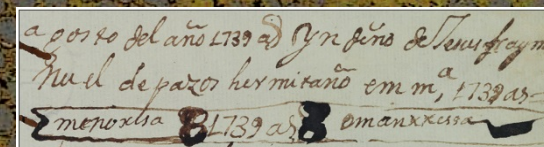 agosto del año 1739 as Yn diño de Jesus fraym
nuel de pazos hermitaño em mª, 1739 as
menorisa 1739 as omanrressa